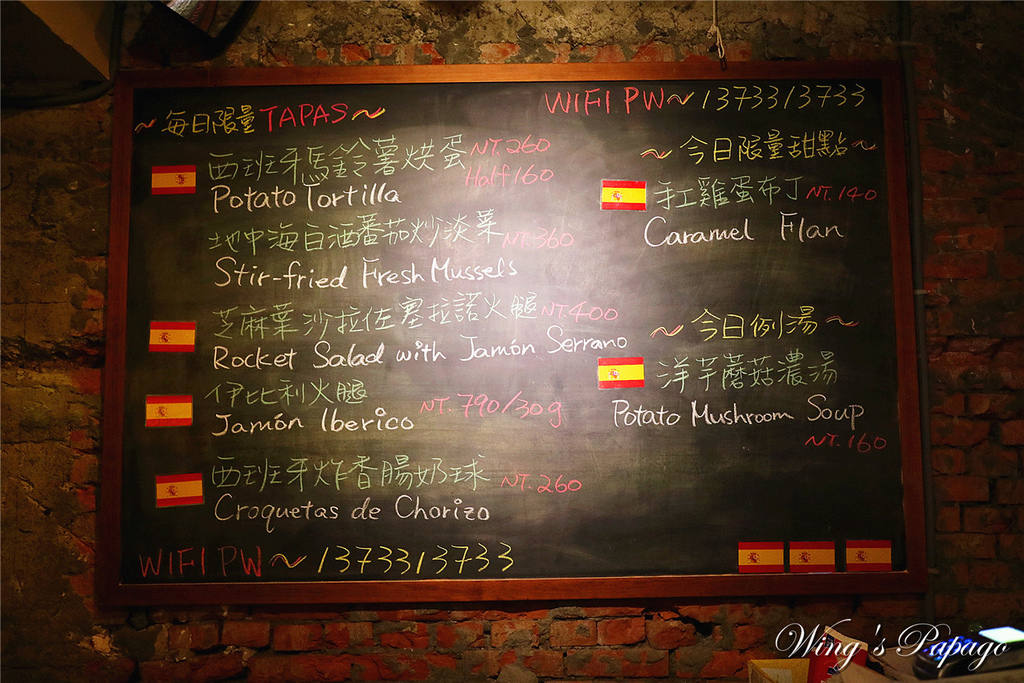 ~ 每日限量 TAPAS ~
西班牙馬鈴薯烘蛋 NT.260
Half 160
Potato Tortilla
地中海白酒番茄炒淡菜 NT.360
Stir-fried Fresh Mussels
芝麻葉沙拉佐塞拉諾火腿 NT.400
Rocket Salad with Jamón Serrano
伊比利火腿
NT. 790/30g
Jamón Iberico
西班牙炸香腸奶球 NT.260
Croquetas de Chorizo
WIFI PW~1373313733
WIFI PW~1373313733
~ 今日限量甜點 ~
扛雞蛋布丁 NT.140
Caramel Flan
~ 今日例湯 ~
洋芋蘑菇濃湯
Potato Mushroom Soup
NT.160
Wing's Papago